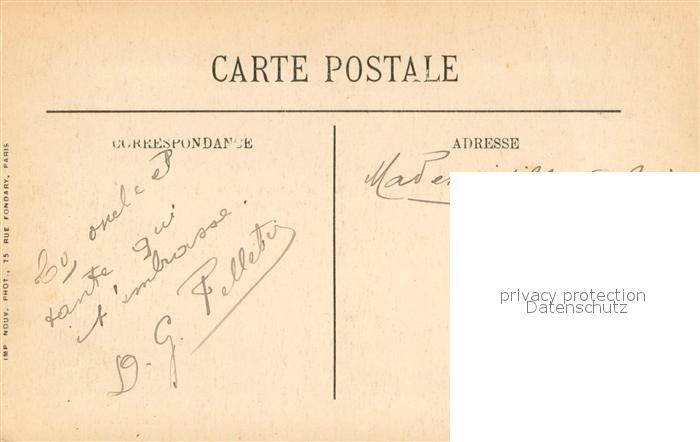 CARTE POSTALE
CORRESPONDANCE
ADRESSE
oncle et
tante qui
t'embrasse.
D. G. Pelletier
IMP. NOUV. PHOT., 75 RUE FONDARY, PARIS
privacy protection
Datenschutz